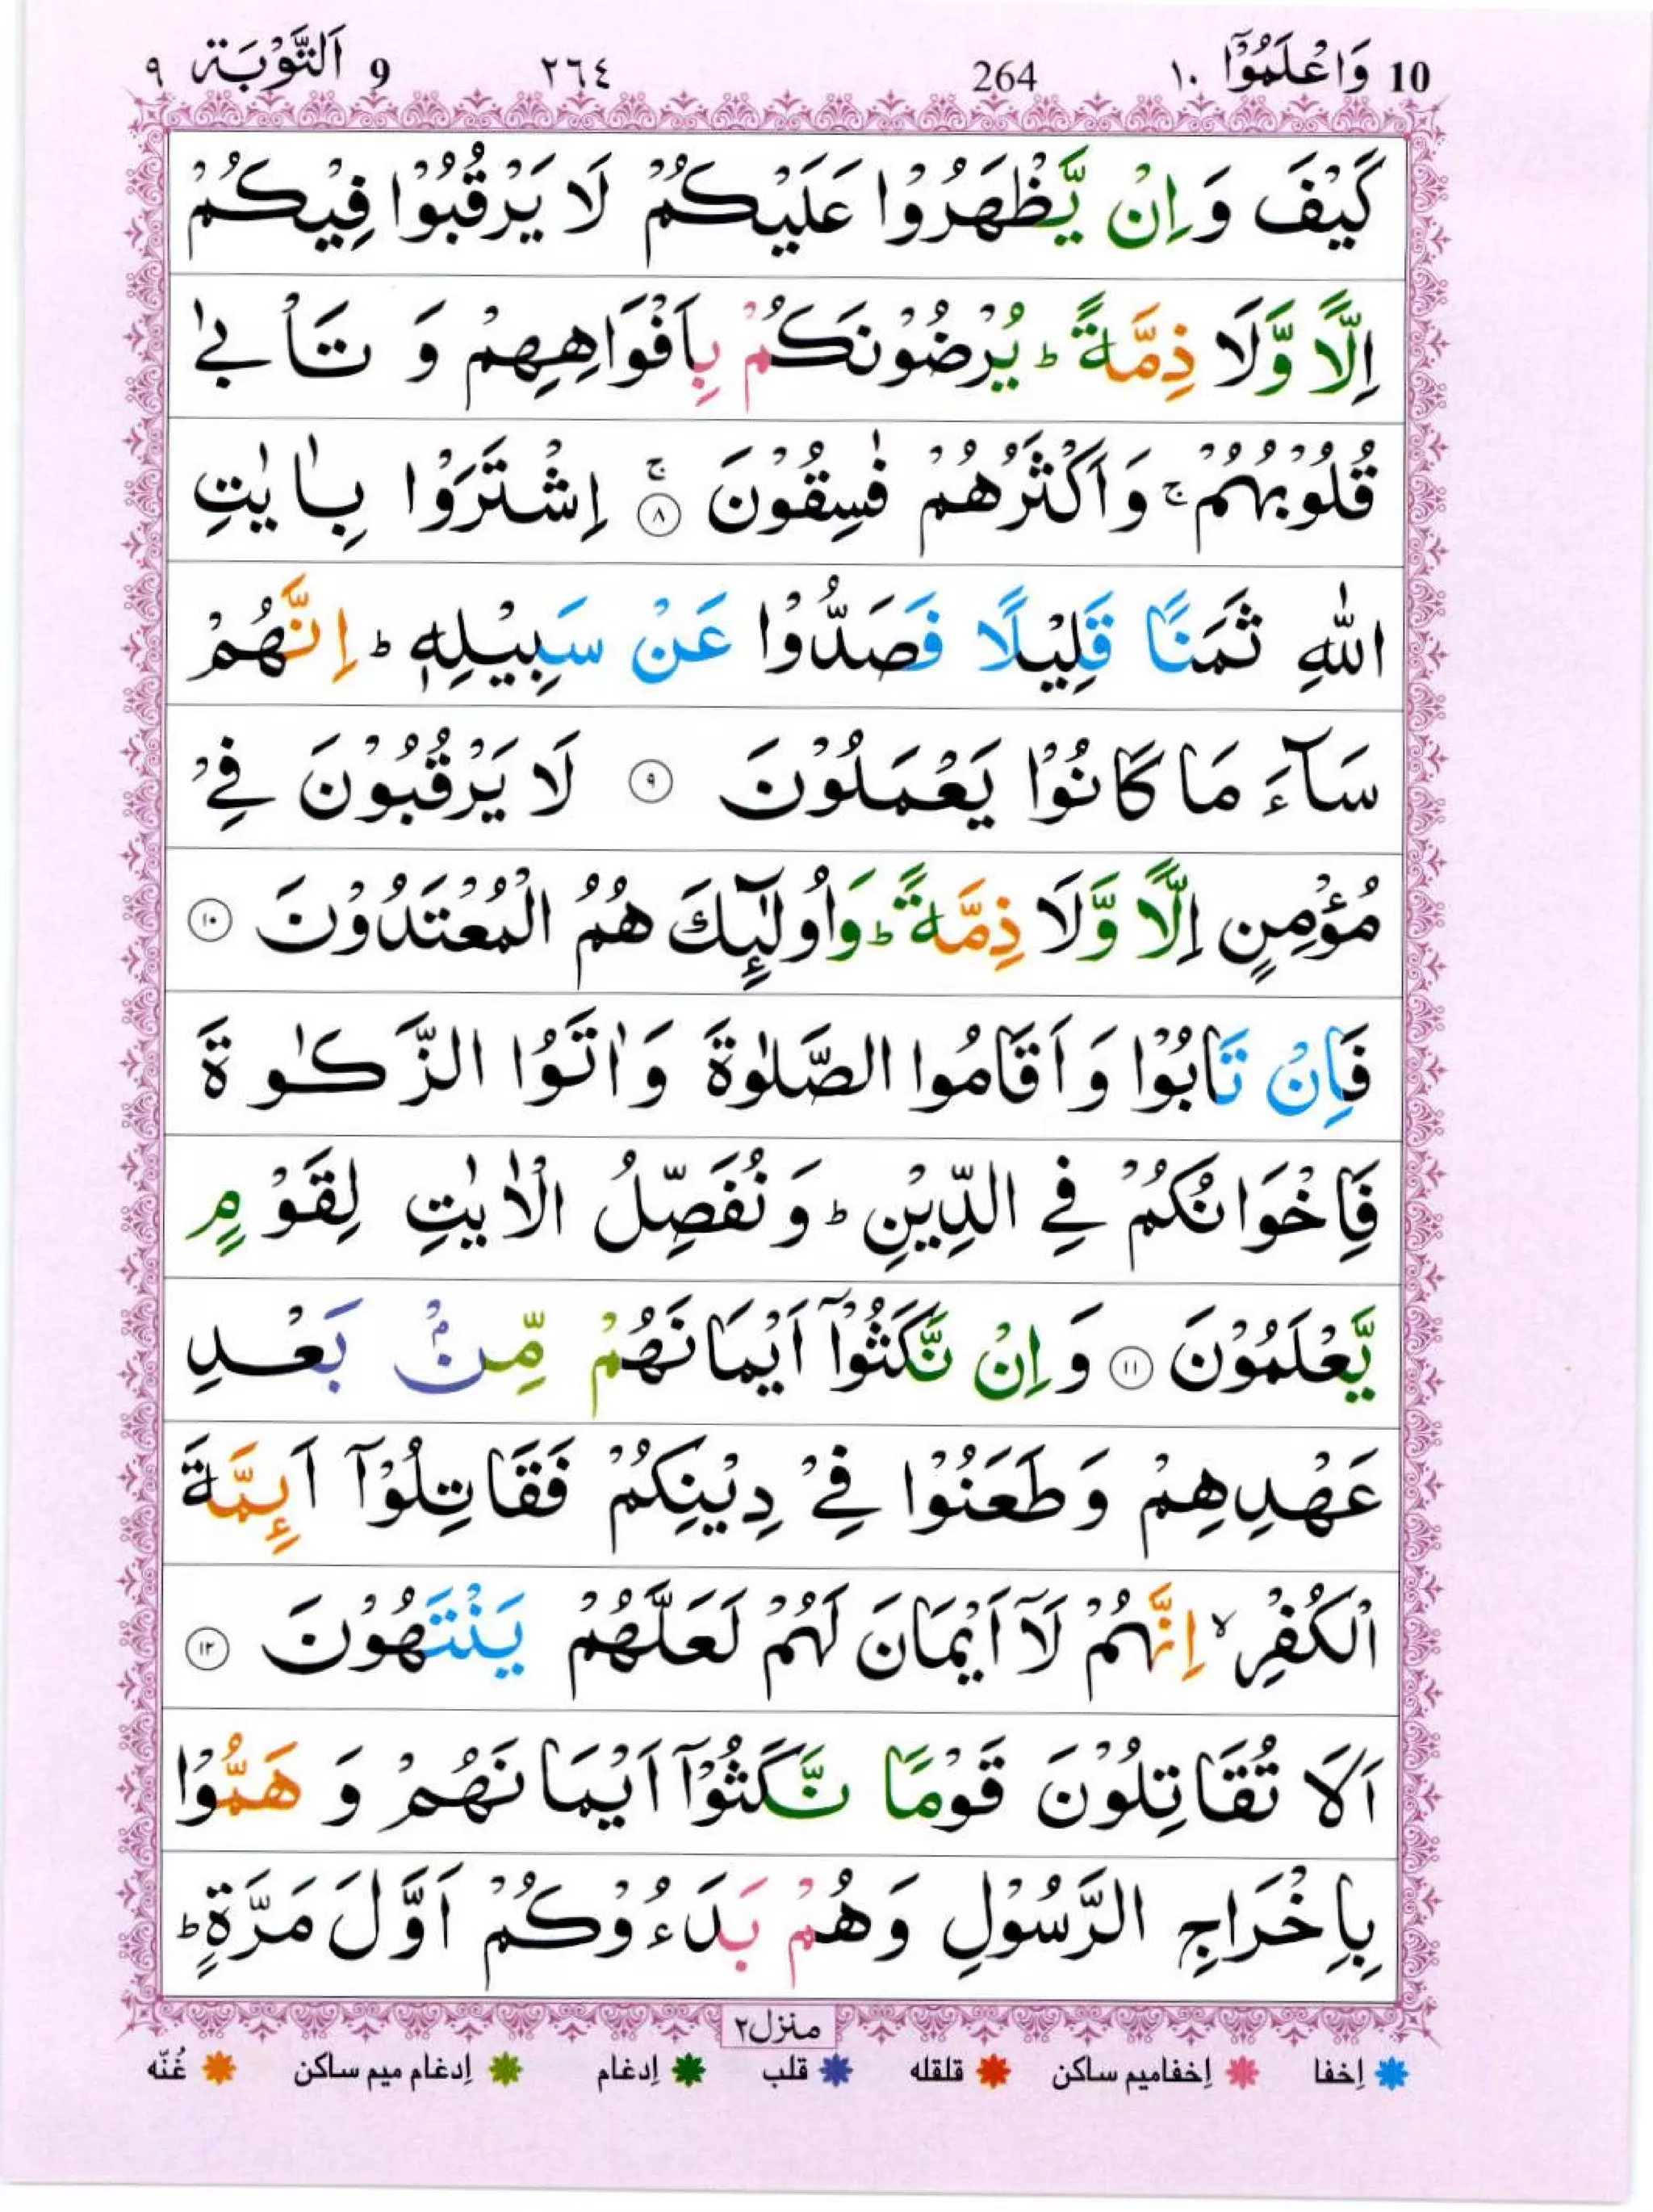 10 وَاعْلَمُوْٓا ١٠ 264 ٢٦٤ 9 اَلتَّوْبَة ٩
كَيْفَ وَاِنْ يَّظْهَرُوْا عَلَيْكُمْ لَا يَرْقُبُوْا فِيْكُمْ
اِلًّا وَّلَا ذِمَّةً ؕ يُرْضُوْنَكُمْ بِاَفْوَاهِهِمْ وَ تَاْبٰى
قُلُوْبُهُمْ ۚ وَاَكْثَرُهُمْ فٰسِقُوْنَ ۚ ﴿٨﴾ اِشْتَرَوْا بِاٰيٰتِ
اللّٰهِ ثَمَنًا قَلِيْلًا فَصَدُّوْا عَنْ سَبِيْلِهٖ ؕ اِنَّهُمْ
سَآءَ مَا كَانُوْا يَعْمَلُوْنَ ﴿٩﴾ لَا يَرْقُبُوْنَ فِيْ
مُؤْمِنٍ اِلًّا وَّلَا ذِمَّةً ؕ وَاُولٰٓئِكَ هُمُ الْمُعْتَدُوْنَ ﴿١٠﴾
فَاِنْ تَابُوْا وَاَقَامُوا الصَّلٰوةَ وَاٰتَوُا الزَّكٰوةَ
فَاِخْوَانُكُمْ فِي الدِّيْنِ ؕ وَنُفَصِّلُ الْاٰيٰتِ لِقَوْمٍ
يَّعْلَمُوْنَ ﴿١١﴾ وَاِنْ نَّكَثُوْٓا اَيْمَانَهُمْ مِّنْۢ بَعْدِ
عَهْدِهِمْ وَطَعَنُوْا فِيْ دِيْنِكُمْ فَقَاتِلُوْٓا اَئِمَّةَ
الْكُفْرِ ۙ اِنَّهُمْ لَآ اَيْمَانَ لَهُمْ لَعَلَّهُمْ يَنْتَهُوْنَ ﴿١٢﴾
اَلَا تُقَاتِلُوْنَ قَوْمًا نَّكَثُوْٓا اَيْمَانَهُمْ وَ هَمُّوْا
بِاِخْرَاجِ الرَّسُوْلِ وَهُمْ بَدَءُوْكُمْ اَوَّلَ مَرَّةٍ ؕ
منزل٢
إخفا إخفامیم ساکن قلقله قلب إدغام إدغام میم ساکن غُنّه